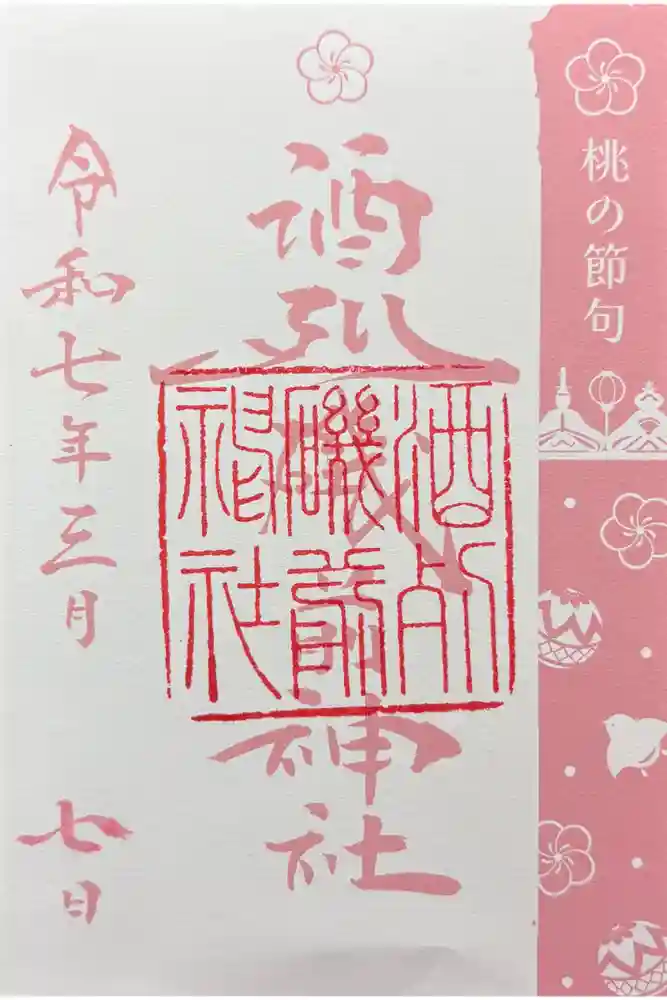 桃の節句
酒列磯前神社
酒列磯前神社
令和七年三月
七日